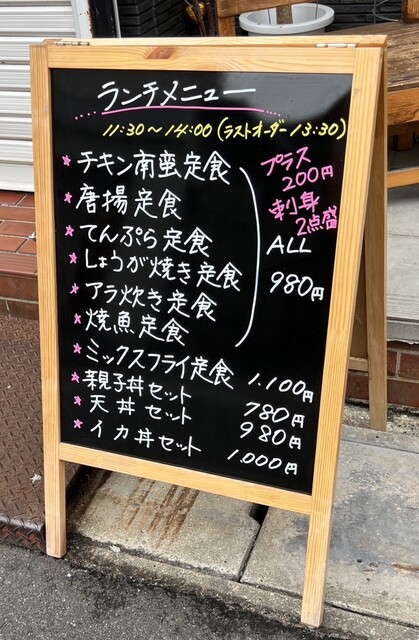 ランチメニュー
11:30～14:00(ラストオーダー13:30)
★チキン南蛮定食
★唐揚定食
★てんぷら定食
★しょうが焼き定食
★アラ炊き定食
★焼魚定食
ALL
980円
プラス
200円
刺身
2点盛
★ミックスフライ定食 1.100円
★親子丼セット 780円
★天丼セット 980円
★イカ丼セット 1.000円